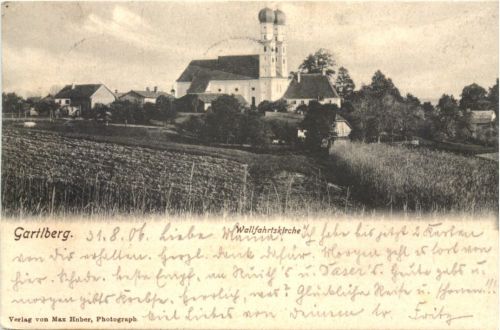 Gartlberg. Wallfahrtskirche
31.8.06. Liebe Mama. Ich habe bis jetzt 2 Karten
von dir erhalten. Herzl. dank dafür. Morgen geht es fort von
hier. Schade. beste Empf. an und Heute gabs u.
morgen gibts Krebse. Herrlich, was? Glückliche Reise u.
viel Liebes von deinem Fritz
Verlag von Max Huber, Photograph